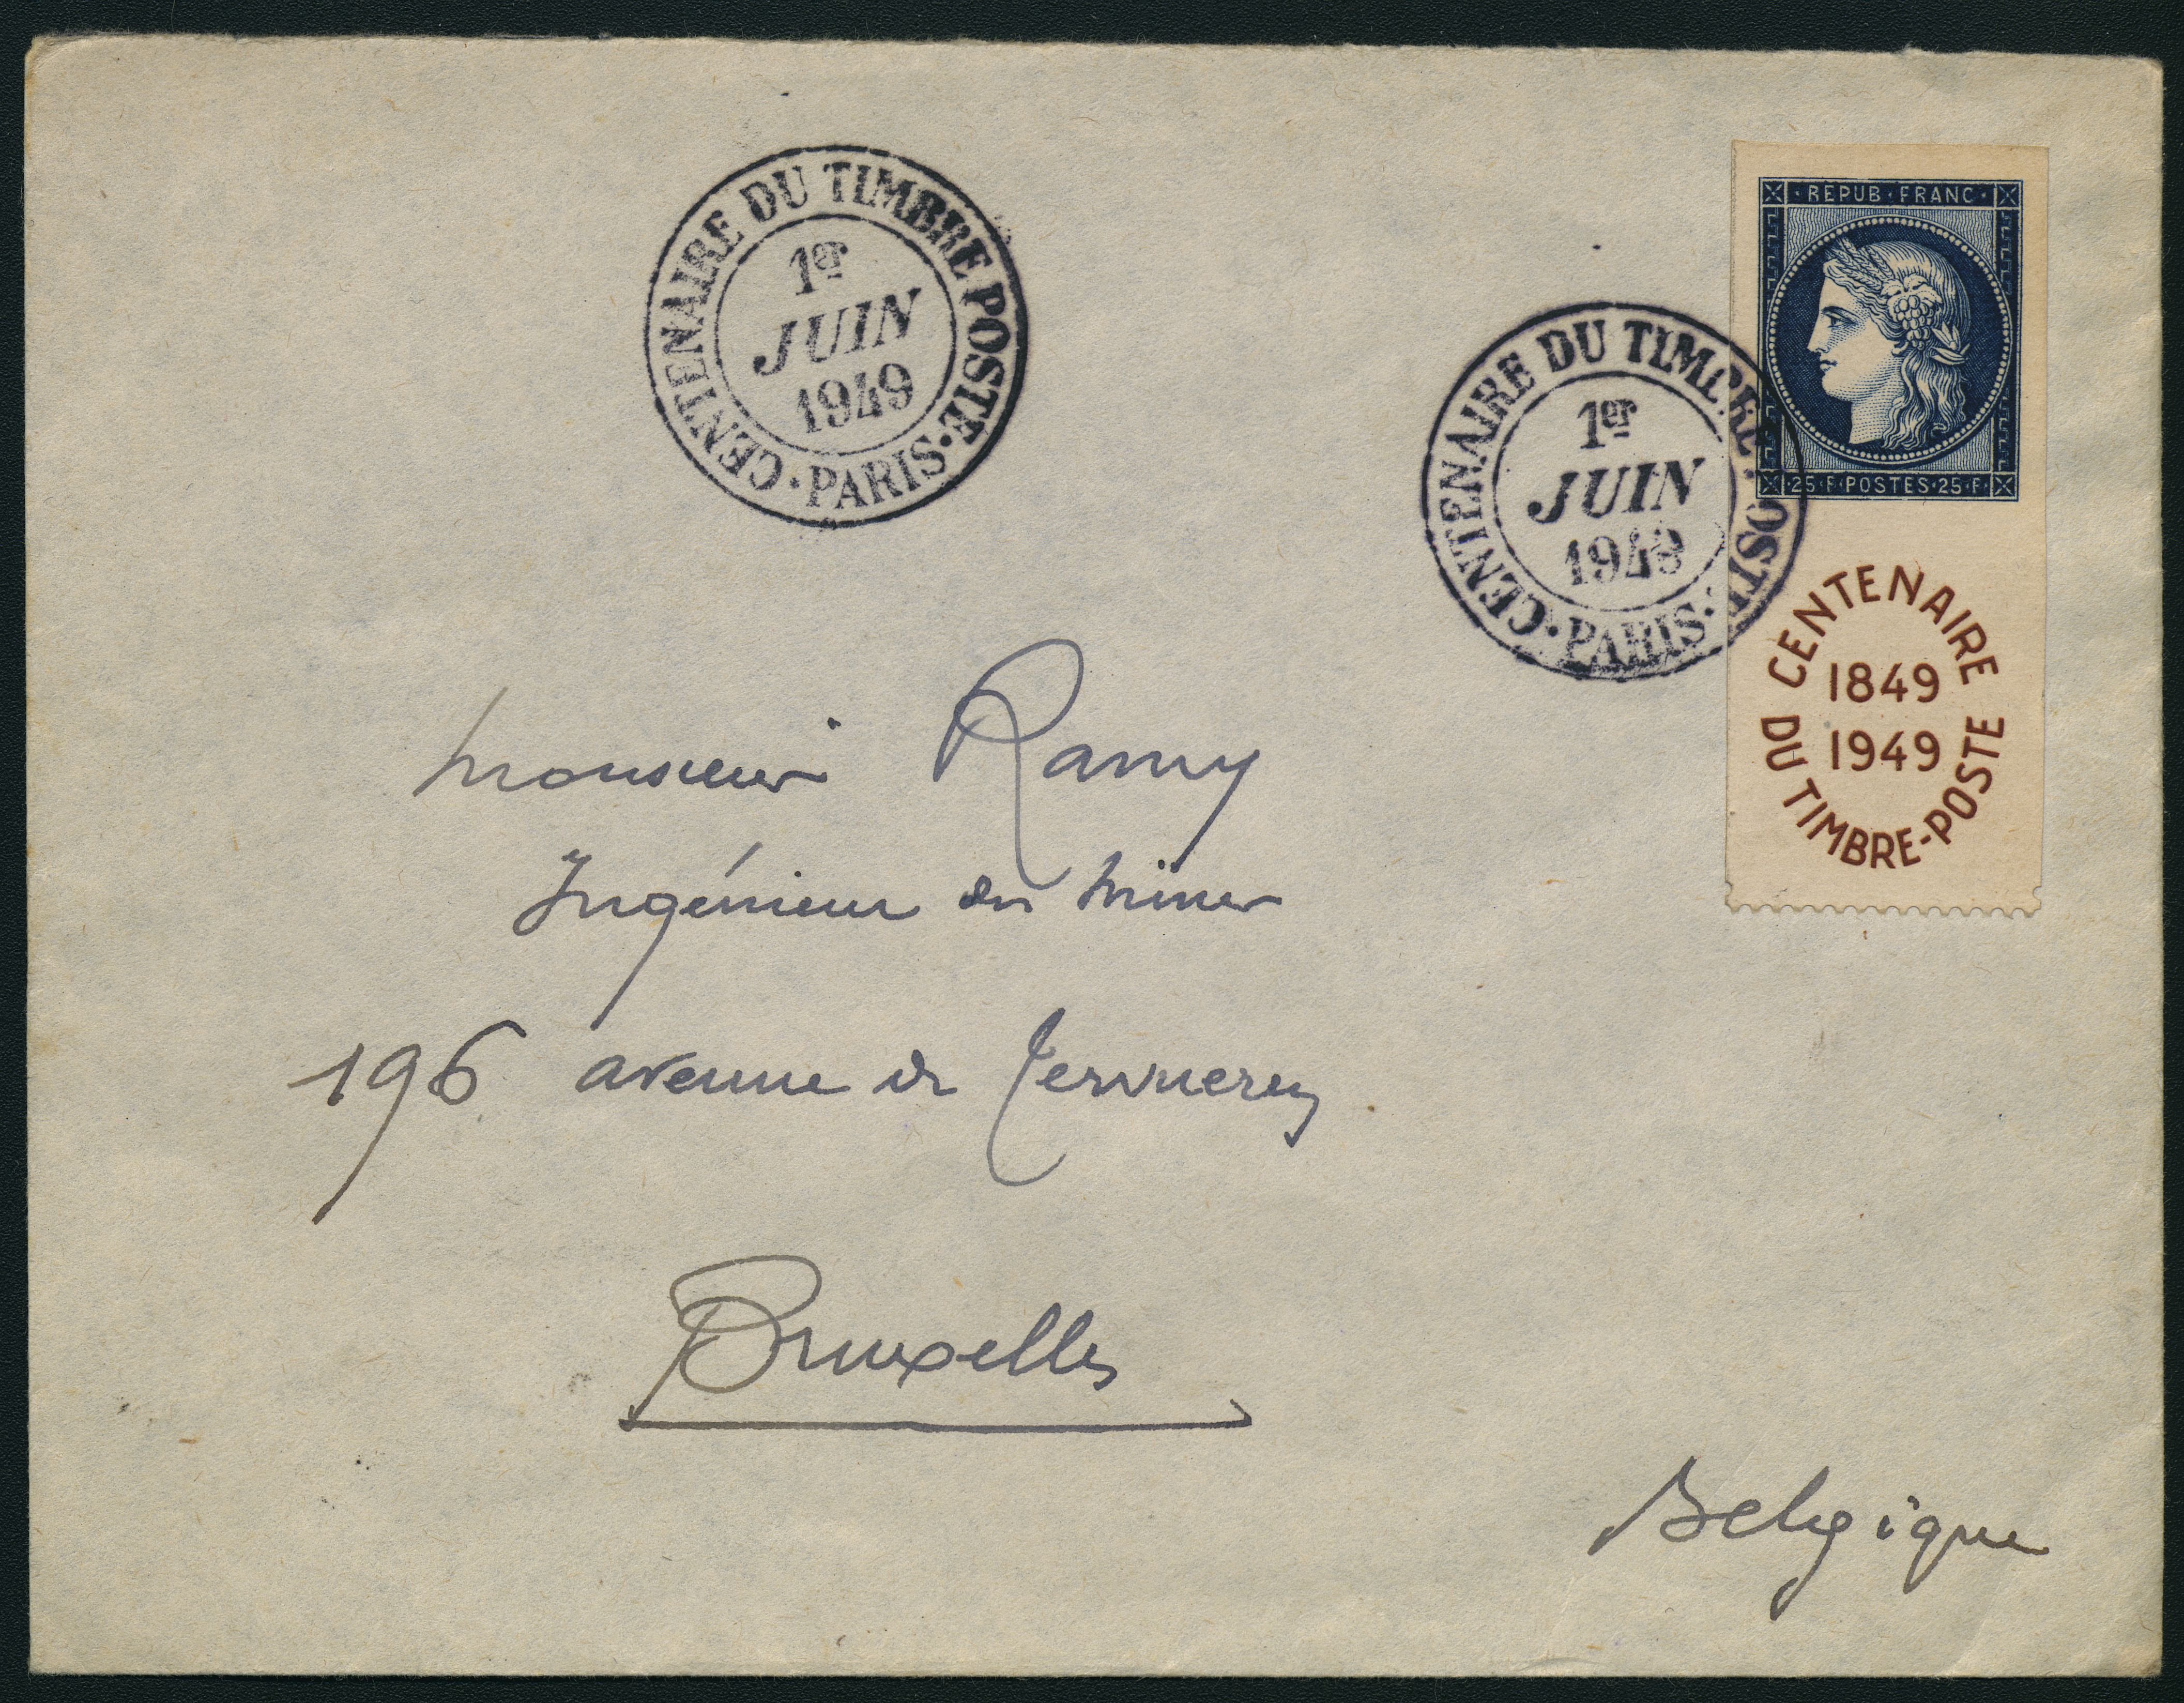 CENTENAIRE DU TIMBRE POSTE · PARIS ·
1er
JUIN
1949
CENTENAIRE DU TIMBRE POSTE · PARIS ·
1er
JUIN
1949
· REPUB · FRANC ·
· 25 · F · POSTES · 25 · F ·
CENTENAIRE DU TIMBRE-POSTE
1849
1949
Monsieur Ramy
Ingénieur des Mines
196 avenue de Tervueren
Bruxelles
Belgique